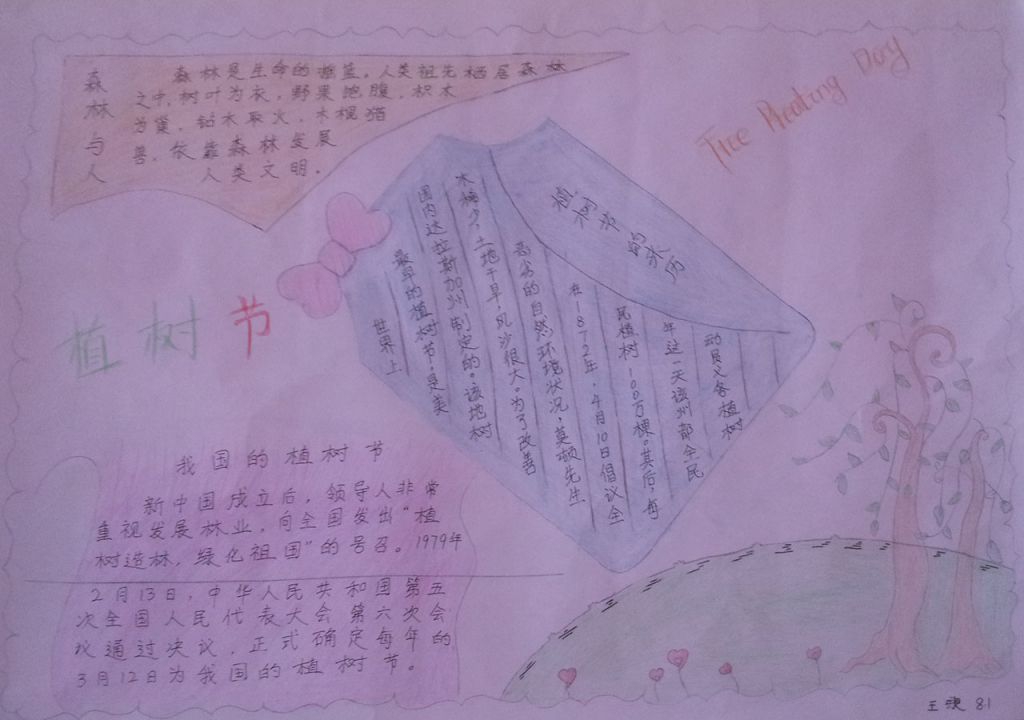 森林与人
森林是生命的摇篮。人类祖先栖居森林
之中,树叶为衣,野果饱腹,积木
为巢,钻木取火,木棍猎
兽,依靠森林发展
人类文明。
Tree Planting Day
植树节
植树节的来历
世界上
最早的植树节,是美
国内达拉斯加州制定的。该地树
木稀少,土地干旱,风沙很大。为了改善
恶劣的自然环境状况,莫顿先生
在1872年,4月10日倡议全
民植树100万棵。其后,每
年这一天该州都全民
动员义务植树
我国的植树节
新中国成立后,领导人非常
重视发展林业,向全国发出“植
树造林,绿化祖国”的号召。1979年
2月13日,中华人民共和国第五
次全国人民代表大会第六次会
议通过决议,正式确定每年的
3月12日为我国的植树节。
王 81